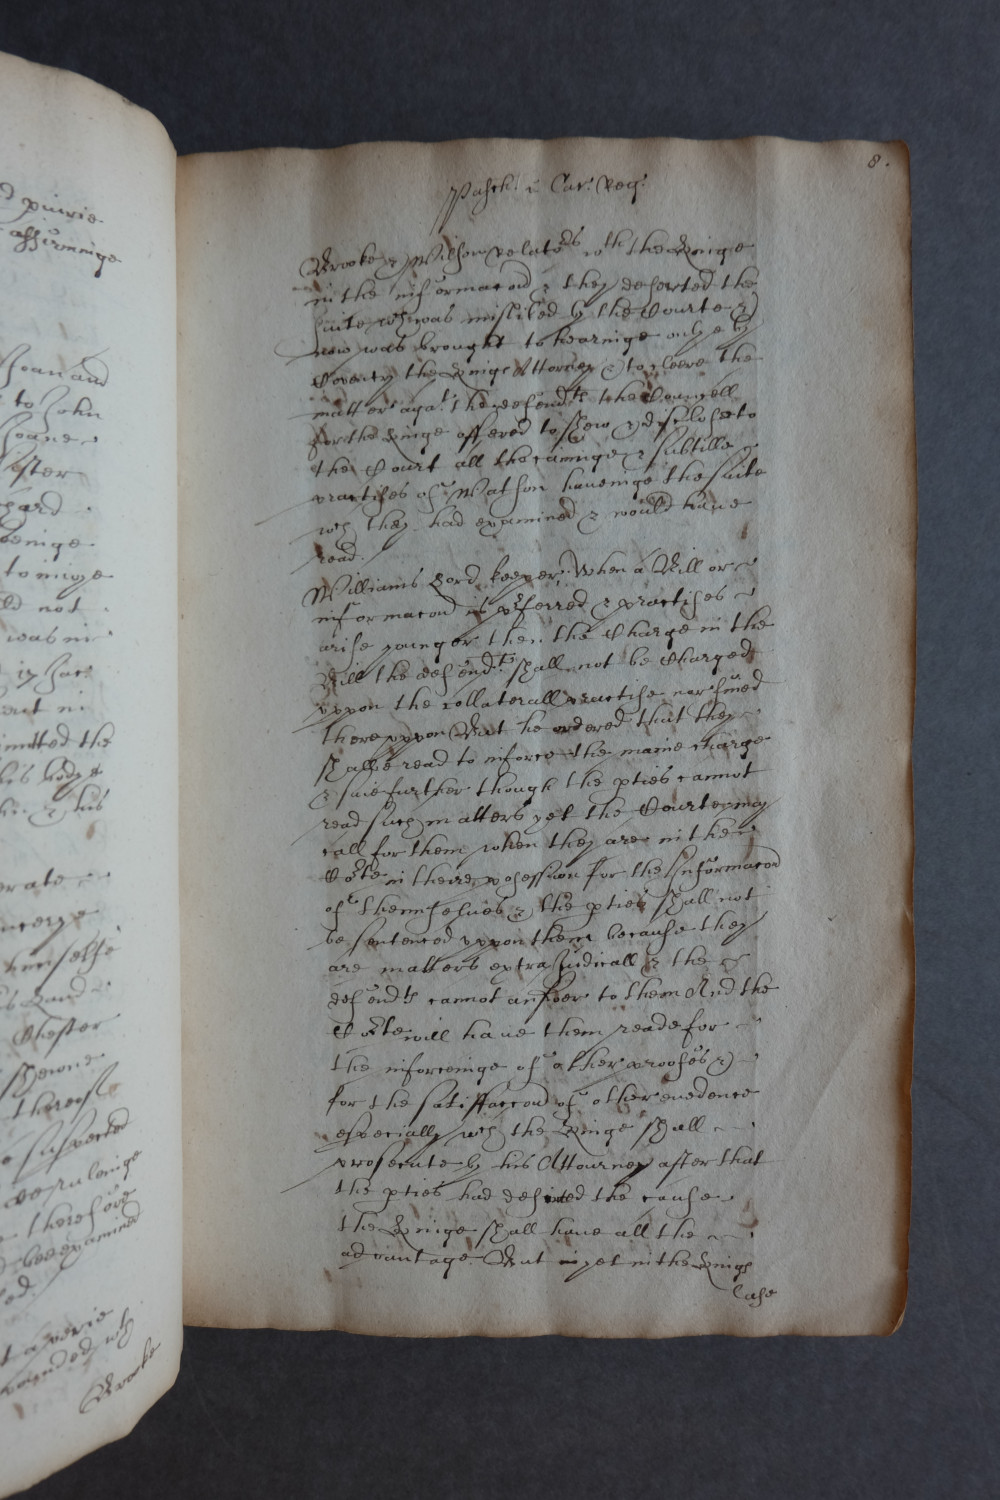 8.
Pasch. i Car: Reg:
Brooke & Wilson relators wth the Kinge
in the informacon & they deserted the
suite wch was misliked by the Courte &
now was brought to hearinge onlye by
Coventry the Kings Attorney & to cleere the
matter agat. the defendts. the Councell
for the Kinge offered to shew & disclose to
the Court all the cuninge & subtille
practises of Watson haueinge the suite
wch they had examined & would haue
read.
Williams Lord keeper. When a Bill or
informacon is pferred & practises
arise younger then the Charge in the
Bill the defendts. shall not be Charged
vppon the collaterall practise nor fined
therevppon But he ordered that they
shalbe read to inforce the maine charge
& saie further though the pties cannot
read such matters yet the Courte may
call for them when they are in the
Courte in theire possession for the Informacon
of themselues & the pties shall not
be sentenced vppon them because they
are matters extraJudicall & the
defendts cannot answer to them And the
Courte will haue them reade for
the inforceinge of other proofes &
for the satisfaccon of other euedence
especially wch the Kinge shall
prosecute by his Attourney after that
the pties had deserted the cause
the Kinge shall haue all the
advantage. But yet in the Kings
Case
d privie
affirminge
Joan and
to John
Joane
after
to ioyne
ld not
was in
17 Jac:
mitted the
his bodye
& his
erate
himselfe
Chester
shewne
thereof
suspected
therefore
bee examined
a verie
wch
Brooke